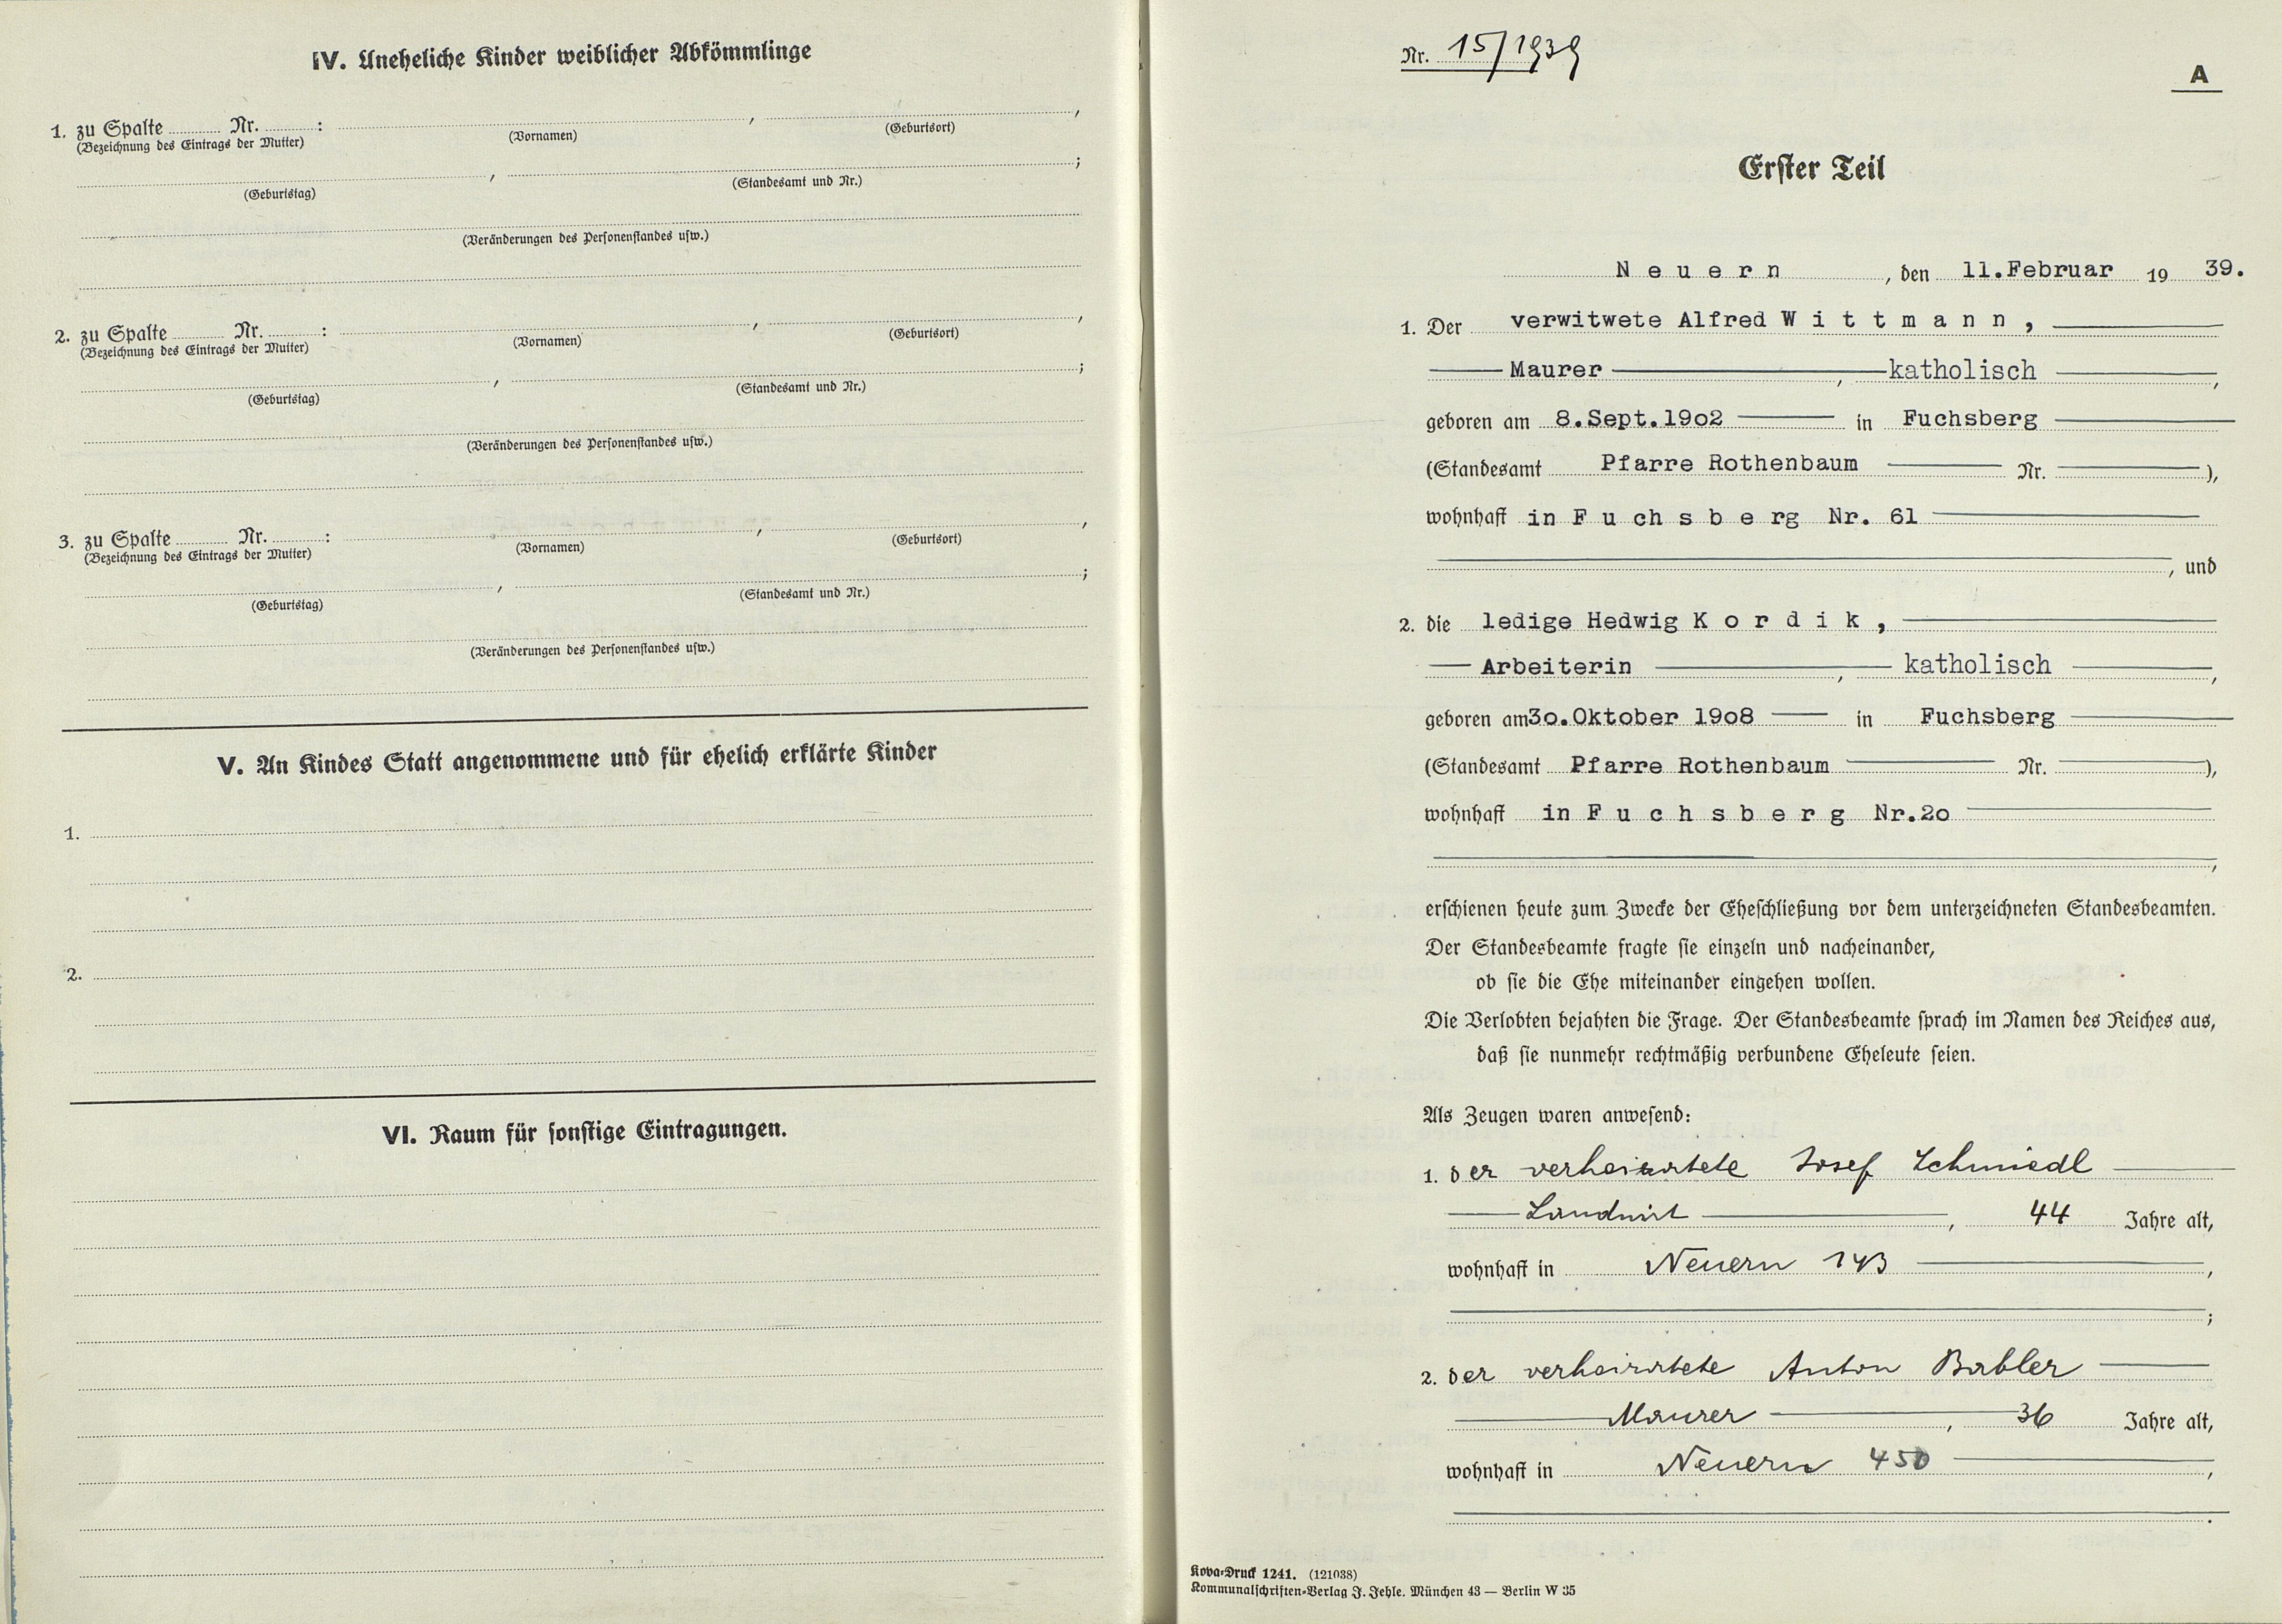 IV. Uneheliche Kinder weiblicher Abkömmlinge
1. zu Spalte Nr. : , ,
(Bezeichnung des Eintrags der Mutter) (Vornamen) (Geburtsort)
, ;
(Geburtstag) (Standesamt und Nr.)
(Veränderungen des Personenstandes usw.)
2. zu Spalte Nr. : , ,
(Bezeichnung des Eintrags der Mutter) (Vornamen) (Geburtsort)
, ;
(Geburtstag) (Standesamt und Nr.)
(Veränderungen des Personenstandes usw.)
3. zu Spalte Nr. : , ,
(Bezeichnung des Eintrags der Mutter) (Vornamen) (Geburtsort)
, ;
(Geburtstag) (Standesamt und Nr.)
(Veränderungen des Personenstandes usw.)
V. An Kindes Statt angenommene und für ehelich erklärte Kinder
1.
2.
VI. Raum für sonstige Eintragungen.
Nr. 15/1939
A
Erster Teil
N e u e r n , den 11.Februar 19 39.
1. Der verwitwete Alfred W i t t m a n n ,
Maurer , katholisch ,
geboren am 8.Sept.19o2 in Fuchsberg
(Standesamt Pfarre Rothenbaum Nr. ),
wohnhaft in F u c h s b e rg Nr. 61
, und
2. die ledige Hedwig K o r d i k ,
Arbeiterin , katholisch ,
geboren am3o.Oktober 19o8 in Fuchsberg
(Standesamt Pfarre Rothenbaum Nr. ),
wohnhaft in F u c h s b e r g Nr.2o
,
erschienen heute zum Zwecke der Eheschließung vor dem unterzeichneten Standesbeamten.
Der Standesbeamte fragte sie einzeln und nacheinander,
ob sie die Ehe miteinander eingehen wollen.
Die Verlobten bejahten die Frage. Der Standesbeamte sprach im Namen des Reiches aus,
daß sie nunmehr rechtmäßig verbundene Eheleute seien.
Als Zeugen waren anwesend:
1. der verheiratete Josef Schmiedl
Landwirt , 44 Jahre alt,
wohnhaft in Neuern 143 ,
;
2. der verheiratete Anton Babler
Maurer , 36 Jahre alt,
wohnhaft in Neuern 450 ,
.
Kova-Druck 1241. (121038)
Kommunalschriften-Verlag J. Jehle. München 43 — Berlin W 35